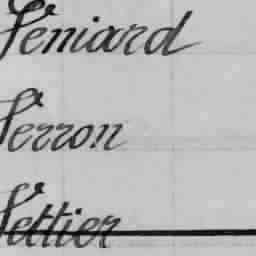 Veniard
Verron
Vettier